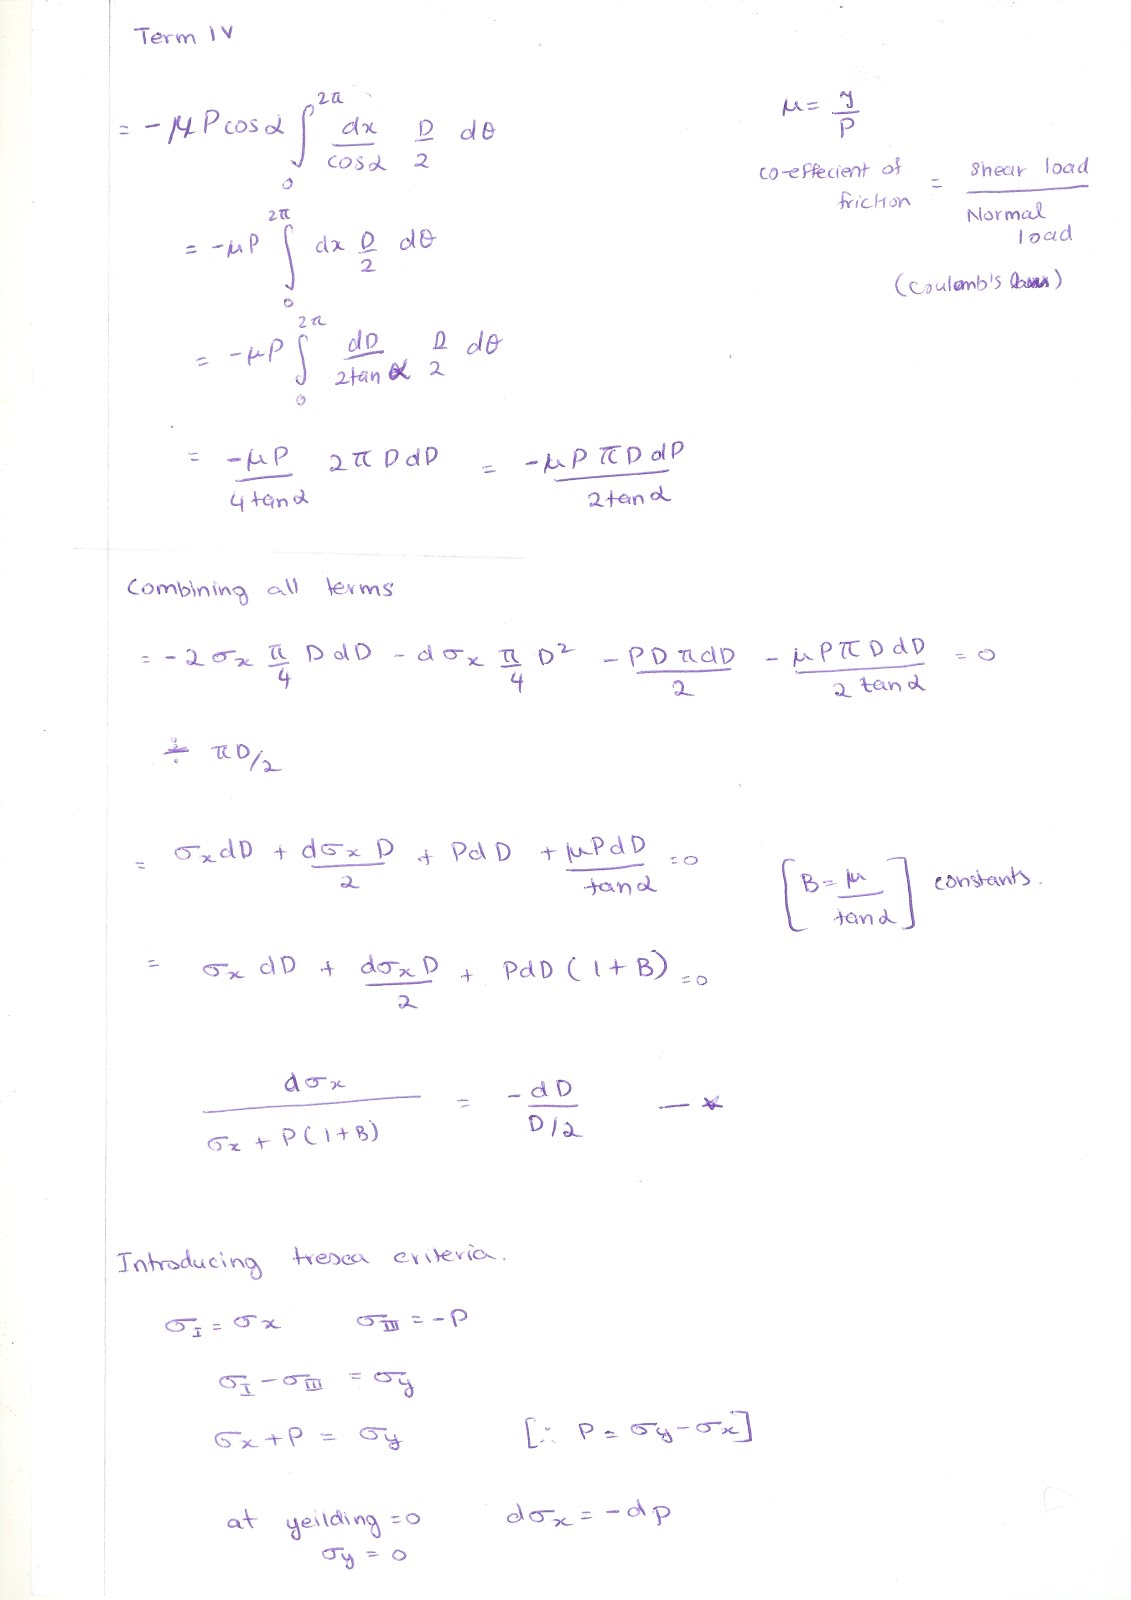 Term IV
= - μ P cos α ∫₀^2π dx/cosα D/2 dθ
μ = y/P
co-effecient of friction = Shear load / Normal load
(Coulomb's laws)
= -μP ∫₀^2π dx D/2 dθ
= -μP ∫₀^2π dD/2tan α D/2 dθ
= -μP/4tanα 2π D dD = -μP π D dP/2tanα
Combining all terms
= -2σx π/4 D dD - dσx π/4 D² - PDπdD/2 - μPπDdD/2 tanα = 0
÷ πD/2
= σx dD + dσx D/2 + PdD + μPdD/tanα = 0
[B = μ/tanα] constants.
= σx dD + dσx D/2 + PdD (1+B) = 0
dσx/σx + P(1+B) = -dD/D/2 — *
Introducing tresca criteria.
σI = σx σIII = -P
σI - σIII = σy
σx + P = σy [∴ P = σy - σx]
at yeilding = 0 dσx = -dp
σy = 0